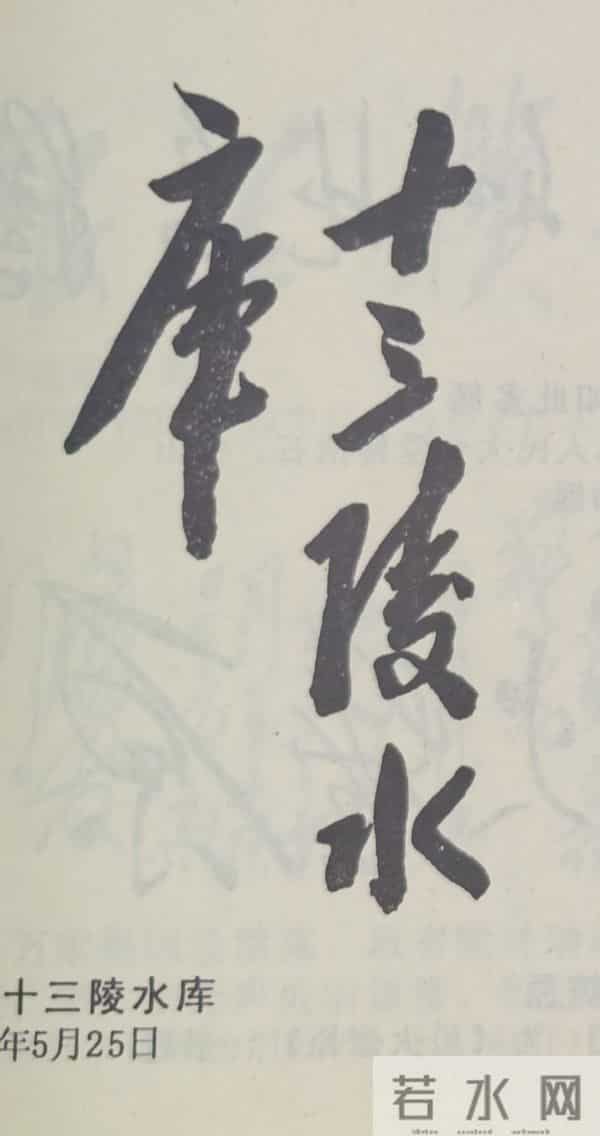 十三陵水
库
十三陵水库
年5月25日
若水网